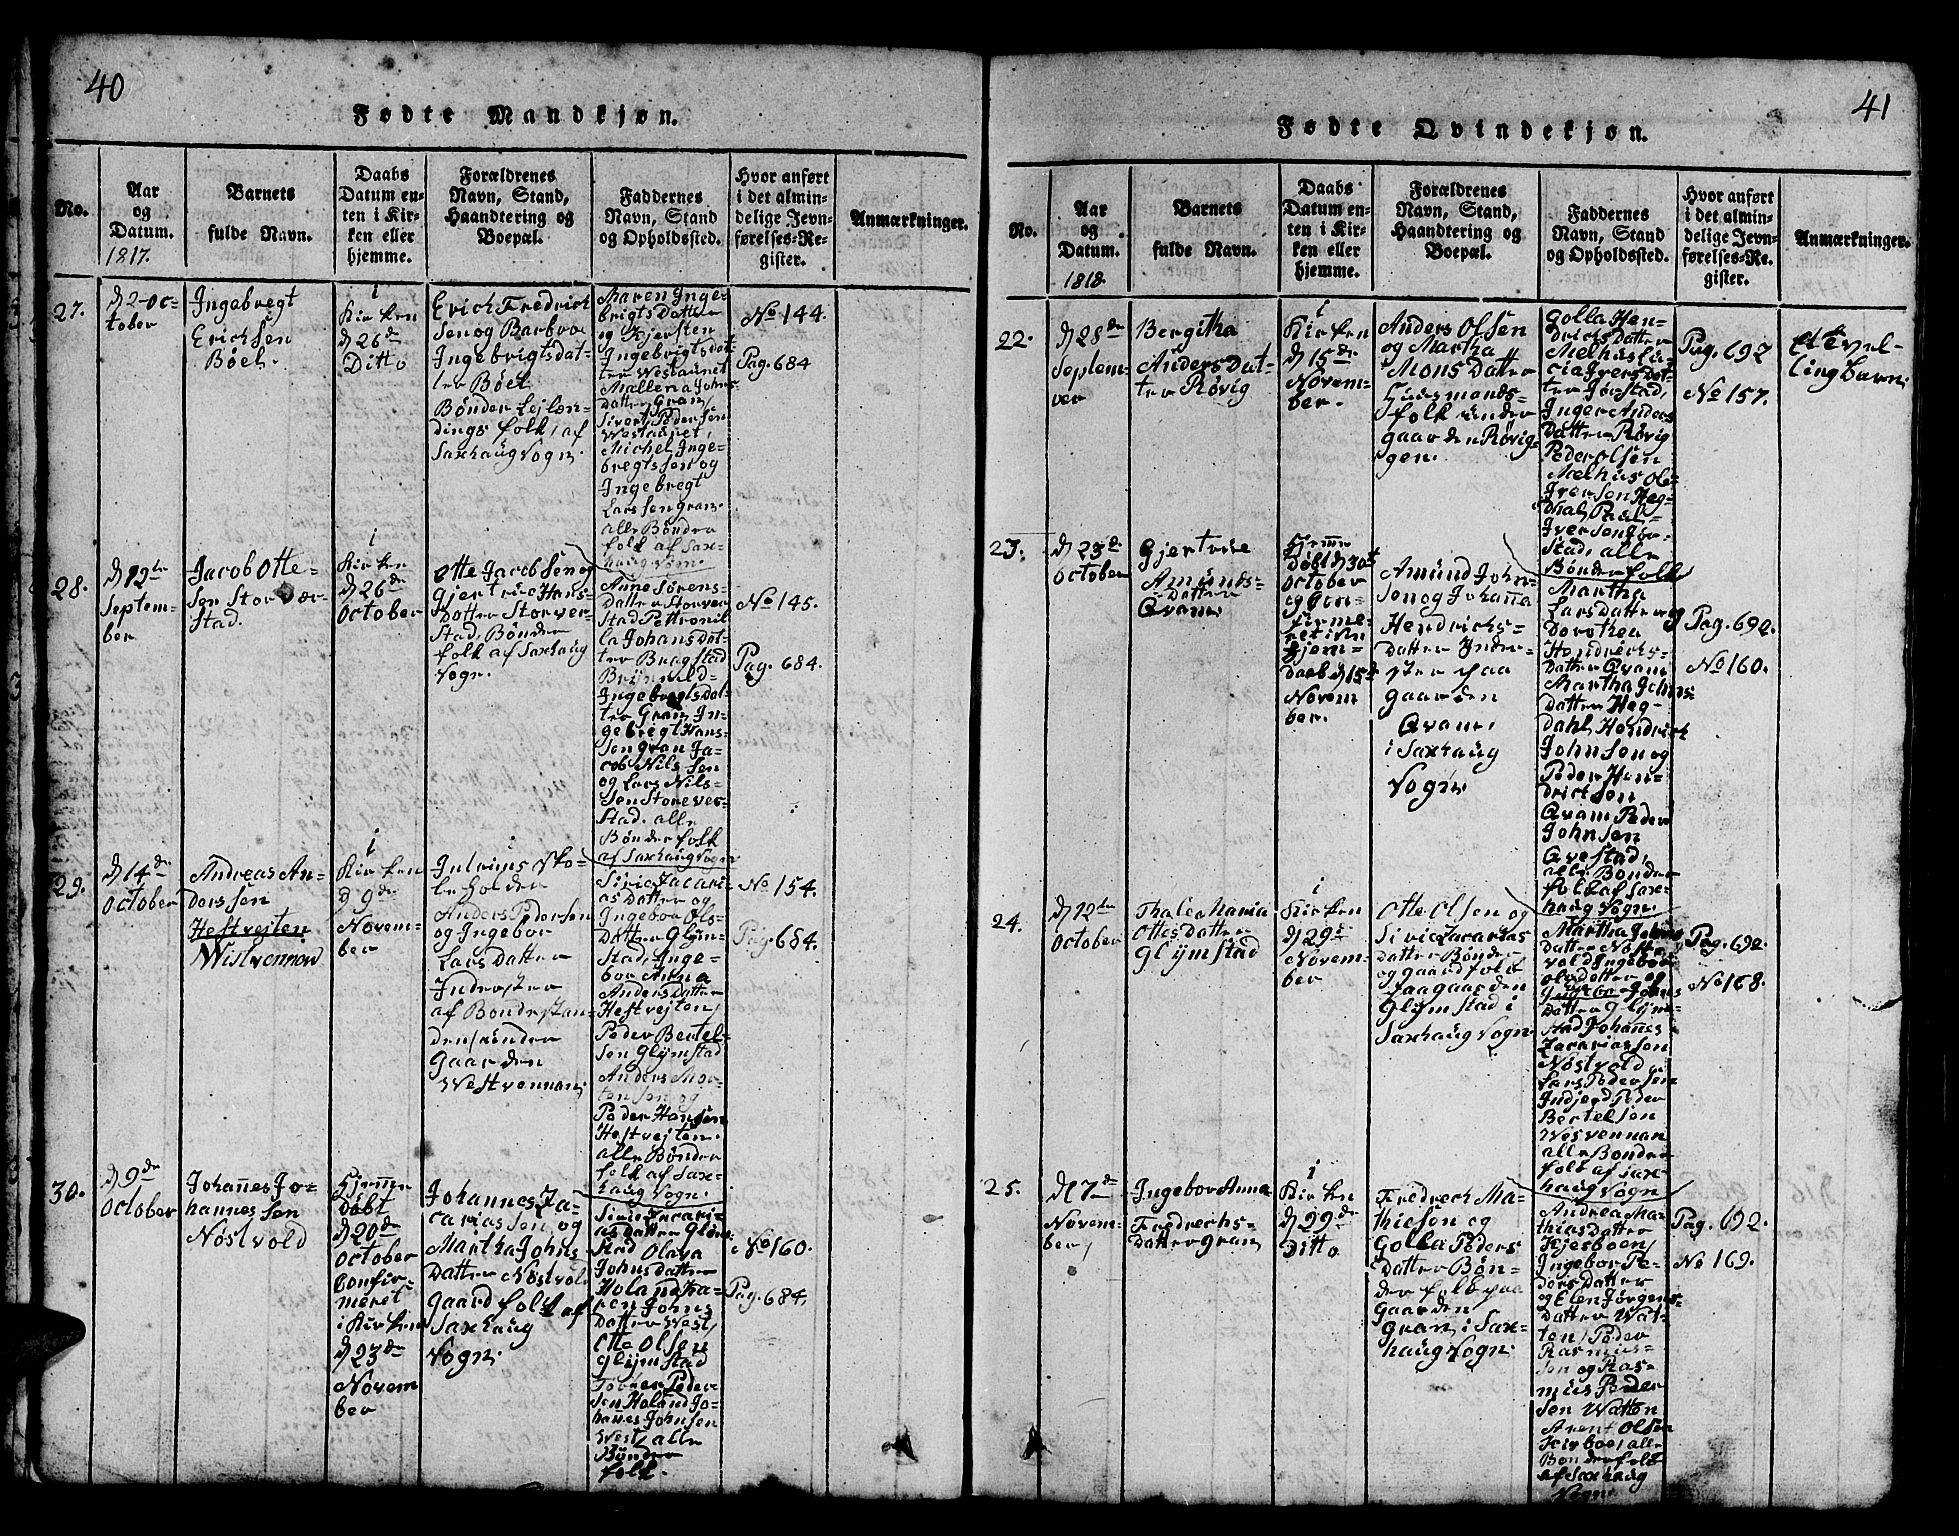 40
Fødte Mandkjøn.
No.
Aar
og
Datum.
1817.
Barnets
fulde Navn.
Daabs
Datum en-
ten i Kir-
ken eller
hjemme.
Forældrenes
Navn, Stand,
Haandtering og
Boepæl.
Faddernes
Navn, Stand
og Opholdssted.
Hvor anført
i det almin-
delige Jevn-
førelses-Re-
gister.
Anmærkninger.
27.
d 2 Oc-
tober
Ingebregt
Erichsen
Böel.
i
Kirken
d 26de
Ditto
Erich Fredrich
sen og Barbroe
Ingebrigtsdat-
ter Böel
Bönder Lejlæn-
dings folk, af
Saxhaug Sogn.
Maren Inge-
brigts Datter
og Kjersten
Ingebrigtsdat-
ter Westaunet
Mallena Johns-
datter Gran,
Sivert Pedersen
Westaunet,
Michel Inge-
bregtssen og
Ingebregt
Larssen Gran.
alle Bönder
folk af Sax-
haug Sogn.
No 144.
Pag. 684
28.
d 12te
Septem-
ber
Jacob Otte-
sen Storvær-
stad.
i
Kirken
d 26de
October
Otte Jacobsen og
Gjertrue Hans-
Datter Storver-
stad, Bönder
folk af Saxhaug
Sogn.
Anne Sørens-
datter Storver
stad Pettronil
la Johansdat-
ter Bragstad
Brynnild-
Ingebregtsdat-
ter Gran, In-
gebregt Hans-
sen Gran Ja-
cob Nilssen
og Lars Nils-
sen Storever-
stad. alle
Bönderfolk
af Saxhaug Sogn
No 145.
Pag. 684.
29.
d 14de
October
Andreas An-
derssen
Hestvejten
Wistvennen
i
Kirken
d 9de
Novem-
ber
Sko-
leholder
Anders Pedersen
og Ingebor
Lars Datter
Inderster
af Bondestan-
den under
Gaarden
Westvennan.
Siric Zacari-
as Datter og
Ingebor Ols-
Datter Glÿm-
stad, Inge-
bor Anna
Anders Datter
Hestvejten,
Peder Bertel-
sen Glÿmstad
Anders Mor-
tensen og
Peder Hansen
Hestvejten.
alle Bönder
folk af Sax-
haug Sogn.
No 154.
Pag. 684.
30.
d 9de
October
Johannes Jo-
hannessen
Nöstvold
Hjemme
Döbt
d 20de
October
Confir-
meret
i Kirken
d 23de
Novem
ber
Johannes Za-
cariassen og
Martha Johns
Datter Nöstvold
Gaardfolk af
Saxhaug
Sogn.
Siric Zacari-
as Datter Glÿm-
stad Olava
Johnsdatter
Holand Ka-
ren Johns
Datter West,
Otte Olsen
Glÿmstad
Peder-
sen Holand Jo-
hanes Johnsen
West, alle
Bönder
folk.
No 160.
Pag. 684.
41
Fødte Qvindekjøn.
No.
Aar
og
Datum.
1818.
Barnets
fulde Navn.
Daabs
Datum en-
ten i Kir-
ken eller
hjemme.
Forældrenes
Navn, Stand,
Haandtering og
Boepæl.
Faddernes
Navn, Stand
og Opholdssted.
Hvor anført
i det almin-
delige Jevn-
førelses-Re-
gister.
Anmærkninger.
22.
d 28de
Septem-
ber
Bergitha
Anders Dat-
ter Rövig
i
Kirken
d 15de
Novem-
ber.
Anders Olsen
og Martha
Mons Datter
Huusmands-
folk under
gaarden Rövig-
gen.
Golla Hen-
drichs Datter
Melhus Lu-
cia Ivers Dat-
ter Jörstad,
Inger Anders
Datter Rövig
Peder Olsen
Melhus Ole
Iversen Heg-
dhal, Paul
Iversen Jör-
stad, alle
Bönderfolk
Pag. 692
No 157.
Et Tvil-
lingbarn.
23.
d 23de
October
Gjertrue
Amunds-
Datter
Qvam.
Hjemme
Döbt d 30te
October
og Con-
firme-
ret
hjem-
daab d 15de
Novem
ber.
Amund John-
sen og Johanna
Hendrichs-
datter Inder-
ster paa
gaarden
Qvam,
i Saxhaug
Sogn.
Martha
Larsdatter og
Dorothea
Hendrechs-
datter Qvam
Martha Johns-
datter Heg-
dahl, Hendrich
Johnsen og
Peder Hen-
drichsen
Qvam Peder
Johnsen
Qvestad,
alle Bönder
folk af Sax-
haug Sogn.
Pag. 692.
No 160.
24.
d 12te
October
Thalea Maria
Ottes Datter
Glÿmstad
i
Kirken
d 29de
Novem-
ber
Otte Olsen og
Siric Zacarias
datter Bönder
og Gaardfolk
paa gaarden
Glÿmstad i
Saxhaug Sogn.
Martha Johns
datter Nöst-
vold Ingebor
Olsdatter og
Ingebor Johns
Datter Glÿm-
stad Johannes
Zacariassen
Nöstvold
Lars Pedersen
Indjerd Peder
Bertelsen
Wesvennan
alle Bönder
folk af Sax-
haug Sogn
Pag. 692.
No 168.
25.
d 7de
Novem-
ber,
Ingebor Anna
Fredrechs-
datter Gran,
i
Kirken
d 29de
Ditto
Fredrech Ma-
thiesen og
Golla Peders
datter Bön-
der folk paa
Gaarden
Gran, i Sax-
haug Sogn.
Andrea Ma-
thias datter
Kjesboen,
Ingebor Pe-
ders Datter
og Elen Jörgens-
datter Wat-
ten, Peder
Rasmus-
sen og Ras-
mus Peder
sen Watten
Arent Olsen
Kirboe, alle
Bönderfolk
af Saxhaug
Sogn.
Pag. 692.
No 169.